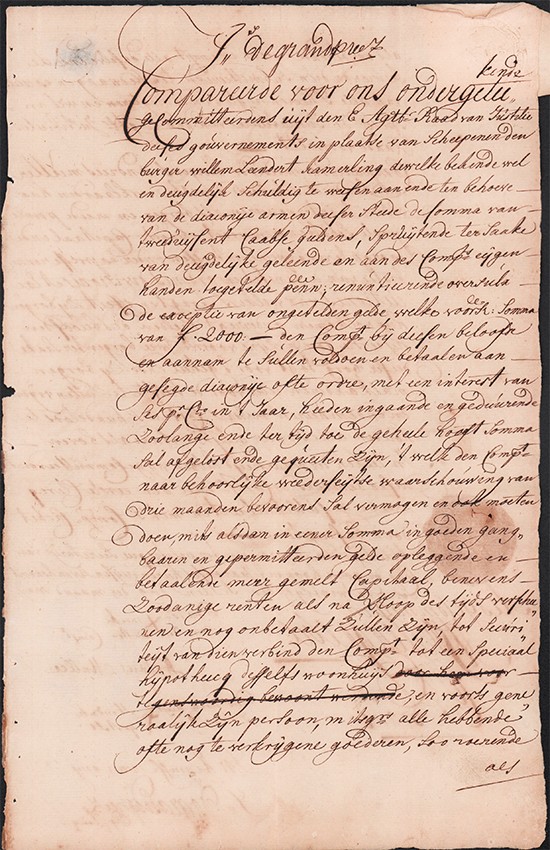 J„s Degrandpreez
kende
Compareerde voor ons ondergetee„
gecommitteerdens uijt den E. Agtb: Raad van Justitie
deeses gouvernements in plaatse van Scheepenen den
burger willem Landert kamerling dewelke bekende wel
en deugdelijk Schuldig te weesen aan ende ten behoeve
van de diaconije armen deeser Steede de Somma van
tweeduijsent Caabse guldens, Spruijtende ter Saake
van deugdelijke geleende en aan des Compts eijgen
handen toegetelde penn: renuntieerende oversulx
de exceptie van ongetelden gelde welke voorsz: Somma
van ƒ 2000:— den Compt bij deesen beloofde
en aannam te Sullen voldoen en betaalen aan
gesegde diaconije ofte ordre, met een interest van
Ses pr Cto in 't Jaar, heeden ingaande en gedeurende
Zoolange ende ter tijd toe de geheele hooft Somma
Sal afgelost ende gequeeten Zijn, 't welk den Compt
naar behoorlijke weederseijtse waarschouwing van
drie maanden bevoorens Sal vermogen en moeten
doen, mits alsdan in eener Somma in goeden gang„
baaren en gepermitteerden gelde opleggende en
betaalende meer gemelt Capitaal, beneevens
Zoodanige renten als na Sloop des tijds verschee
nen en nog onbetaalt Zullen Zijn, tot Securi„
teijt van dien verbind den Compt tot een Speciaal
hijpotheecq desselfs woonhuijs door hem voor
tegenswoordig bewoont werdende, en voorts gene„
raalijk Zijn persoon, mitsgrs alle hebbende
ofte nog te verkrijgene goederen, Soo roerende
als